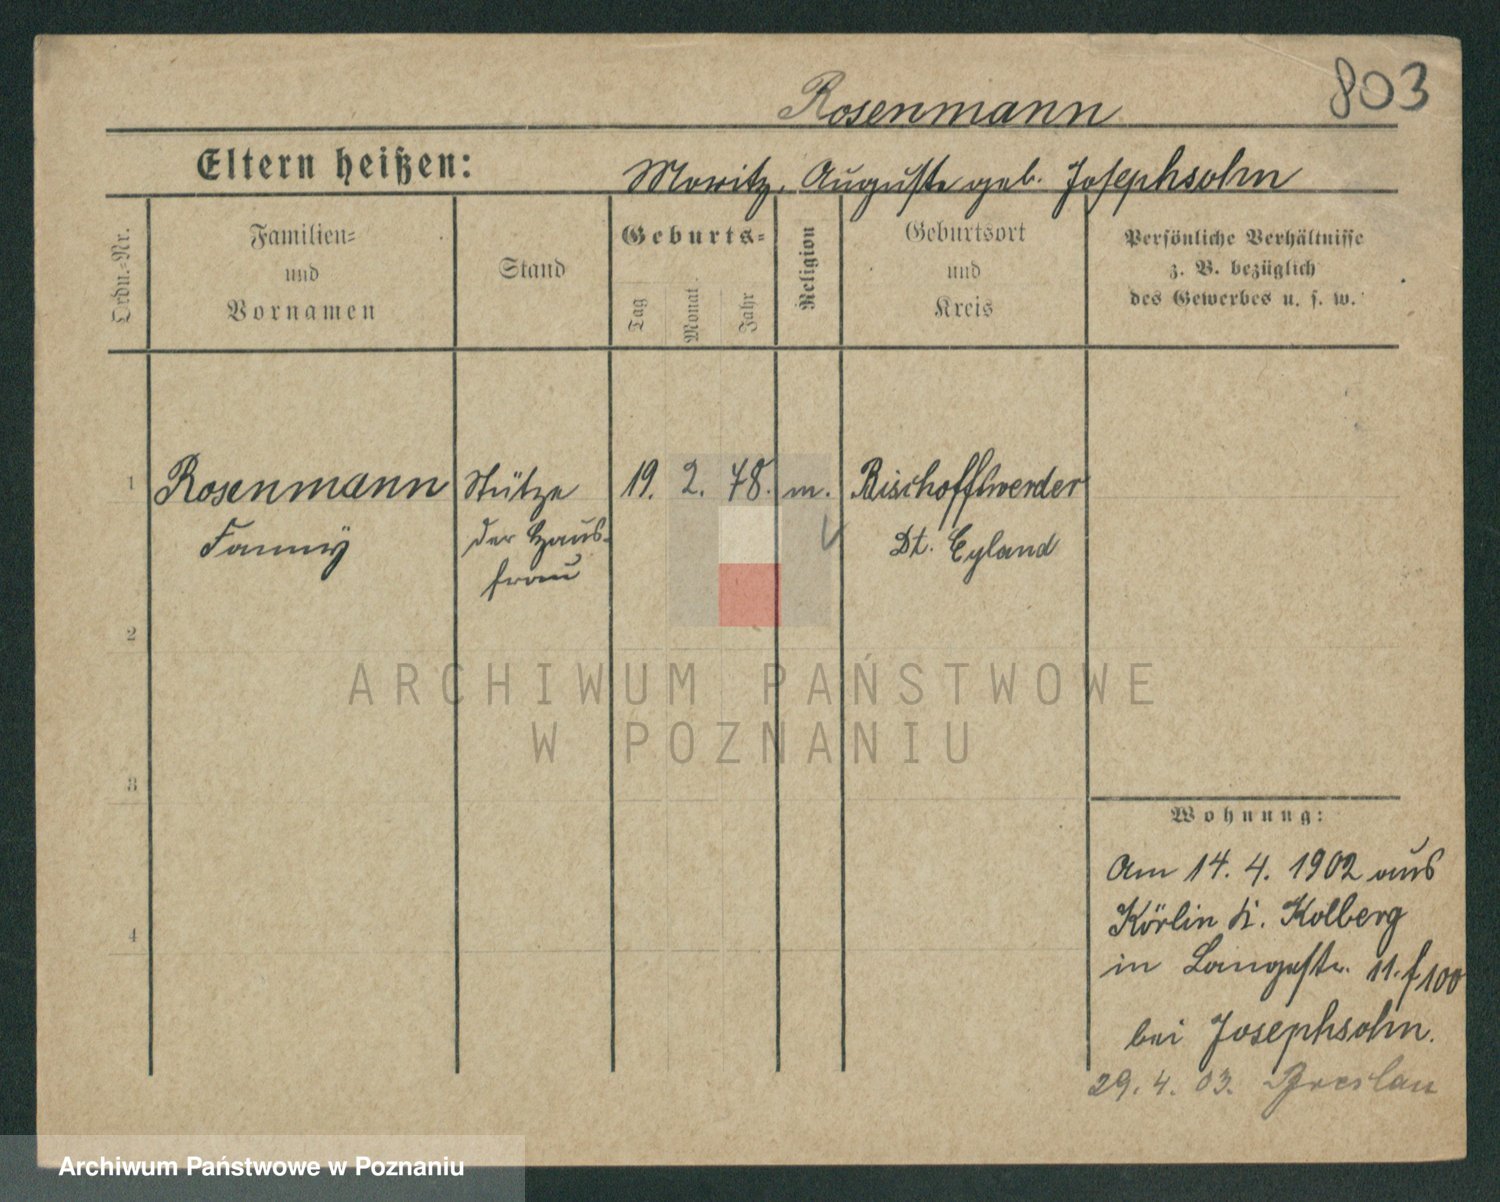 803
Rosenmann
Eltern heißen: Moritz, Auguste geb. Josephsohn
Ordn.-Nr.
Familien-
und
Vornamen
Stand
Geburts-
Tag
Monat
Jahr
Religion
Geburtsort
und
Kreis
Persönliche Verhältnisse
z. B. bezüglich
des Gewerbes u. s. w.
1 Rosenmann Stütze 19. 2. 78. m. Bischoffswerder
Fanny der Haus- Dt. Eyland
frau
2
3
4
Wohnung:
Am 14. 4. 1902 aus
Körlin K. Kolberg
in Langestr. 11. f 100
bei Josephsohn.
29. 4. 03. Breslau
ARCHIWUM PAŃSTWOWE
W POZNANIU
Archiwum Państwowe w Poznaniu